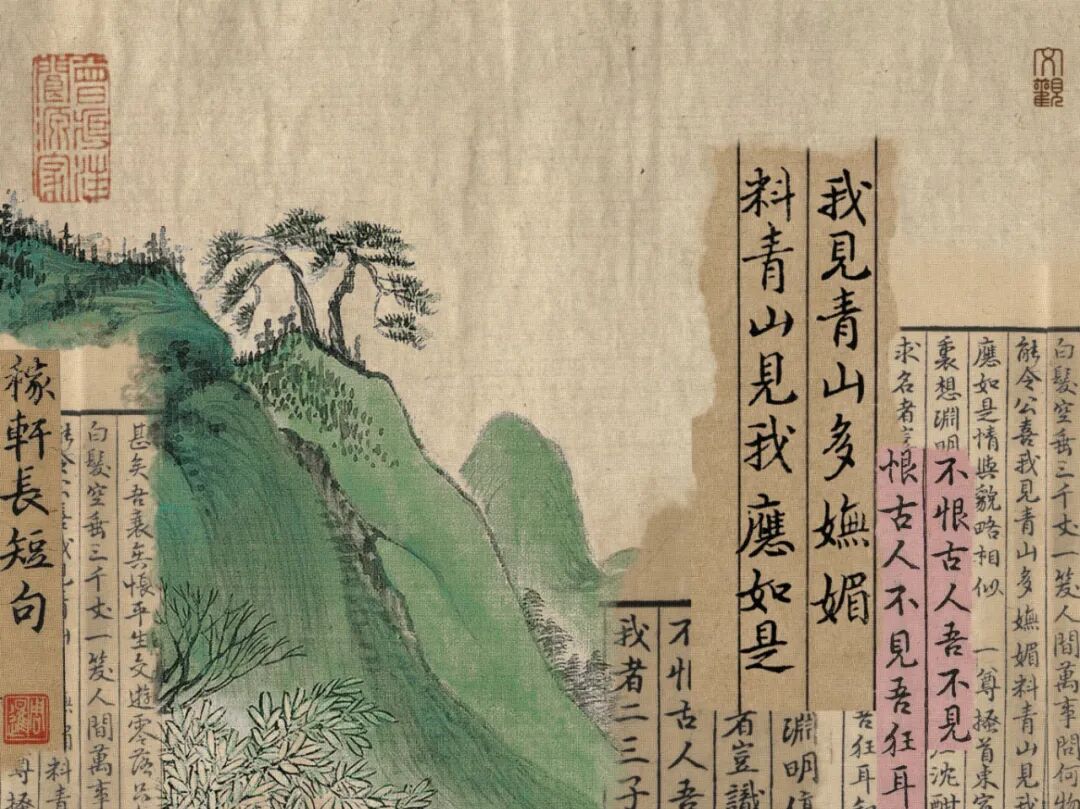 文觀
我見青山多嫵媚
料青山見我應如是
白髮空垂三千丈一笑人間萬事問何物
能令公喜我見青山多嫵媚料青山見我
應如是情與貌略相似 一尊搔首東窗
裏想淵明
求名者
不恨古人吾不見
恨古人不見吾狂耳
沈酣
吾狂耳
淵明停
有豈識
不恨古人吾
我者二三子
甚矣吾衰矣悵平生交遊零落只
白髮空垂三千丈一笑人間萬事
稼軒長短句
料青
尊搔